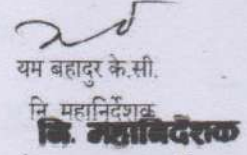 यम बहादुर के.सी.
नि. महानिर्देशक
नि. महानिर्देशक